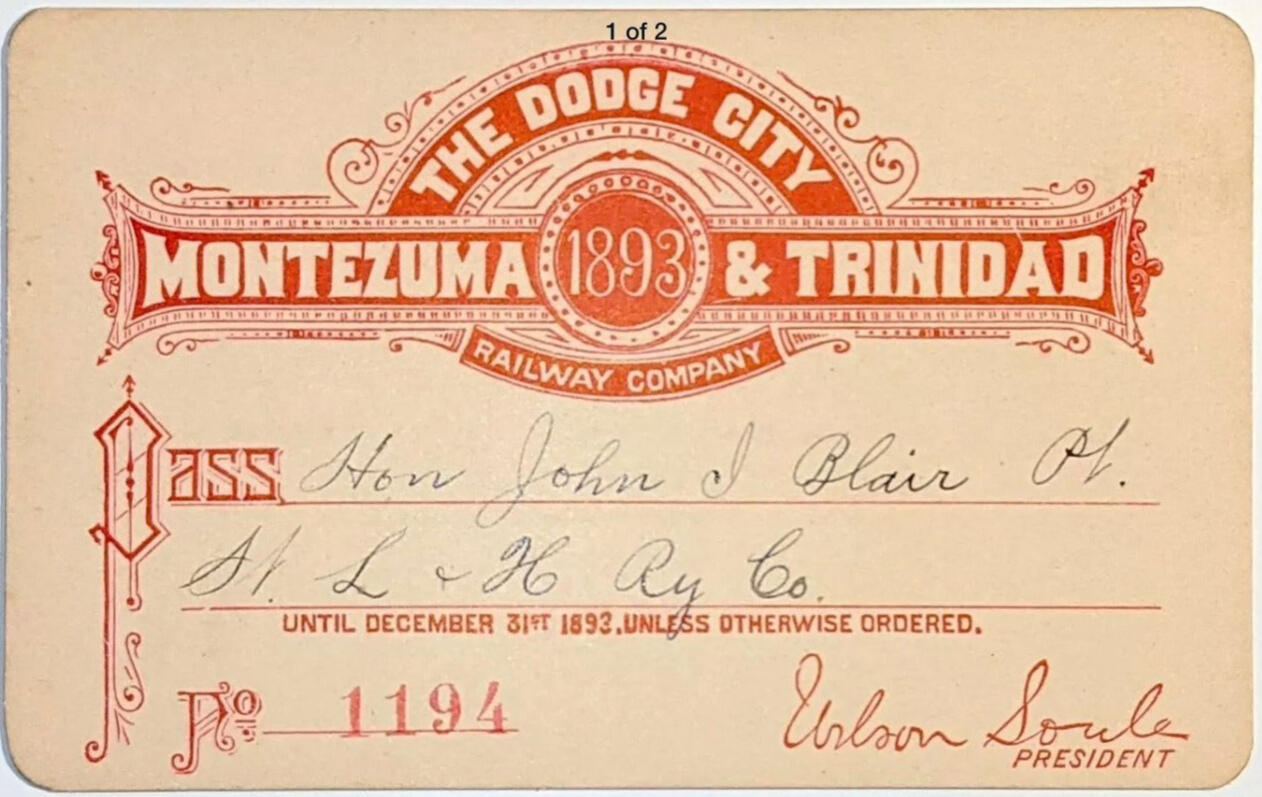 1 of 2
THE DODGE CITY
MONTEZUMA 1893 & TRINIDAD
RAILWAY COMPANY
Pass Hon John I Blair Pt.
St. L & H Ry Co.
UNTIL DECEMBER 31ST 1893, UNLESS OTHERWISE ORDERED.
No 1194
Wilson Soule
PRESIDENT